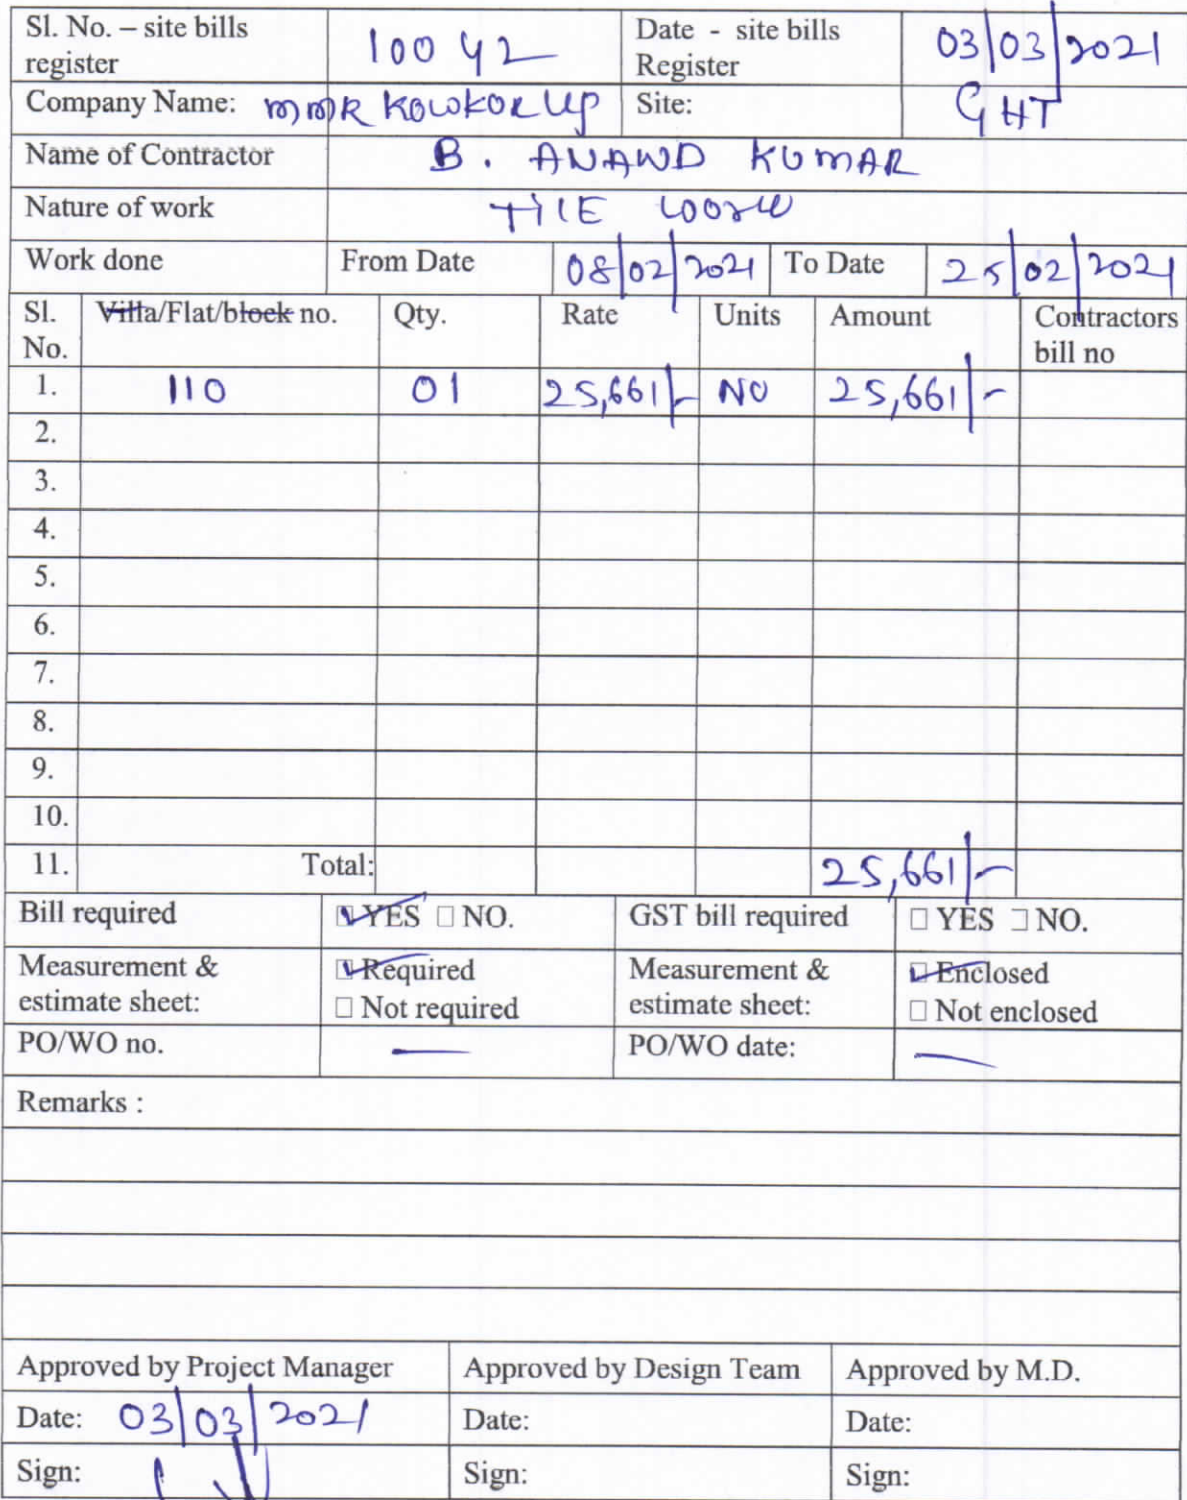 Sl. No. – site bills register 10042 Date - site bills Register 03/03/2021
Company Name: MMR KOWKOR LLP Site: GHT
Name of Contractor B. ANAND KUMAR
Nature of work TILE WORK
Work done From Date 08/02/2021 To Date 25/02/2021
Sl. No. Villa/Flat/block no. Qty. Rate Units Amount Contractors bill no
1. 110 01 25,661/- NO 25,661/-
2.
3.
4.
5.
6.
7.
8.
9.
10.
11. Total: 25,661/-
Bill required YES NO. GST bill required YES NO.
Measurement & estimate sheet: Required Measurement & estimate sheet: Enclosed
Not required Not enclosed
PO/WO no. — PO/WO date: —
Remarks :
Approved by Project Manager Approved by Design Team Approved by M.D.
Date: 03/03/2021 Date: Date:
Sign: Sign: Sign: